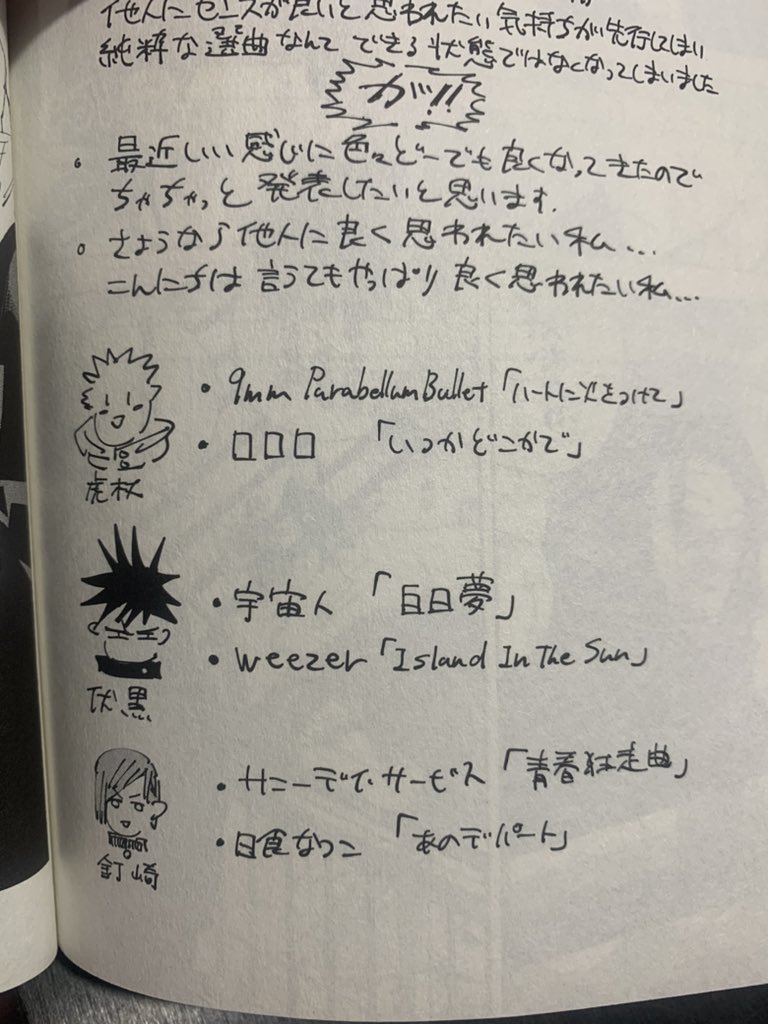 他人にセンスが良いと思われたい気持ちが先行してしまい
純粋な選曲なんてできる状態ではなくなってしまいました
が!!
。最近しいい感じに色々どーでも良くなってきたので
ちゃちゃっと発表したいと思います.
。さようなら他人に良く思われたい私...
こんにちは言うてもやっぱり良く思われたい私...
・9mm Parabellum Bullet「ハートに火をつけて」
・口口口「いつかどこかで」
虎杖
・宇宙人「白日夢」
・weezer「Island In The Sun」
伏黒
・サニーデイ・サービス「青春狂走曲」
・日食なつこ「あのデパート」
釘崎